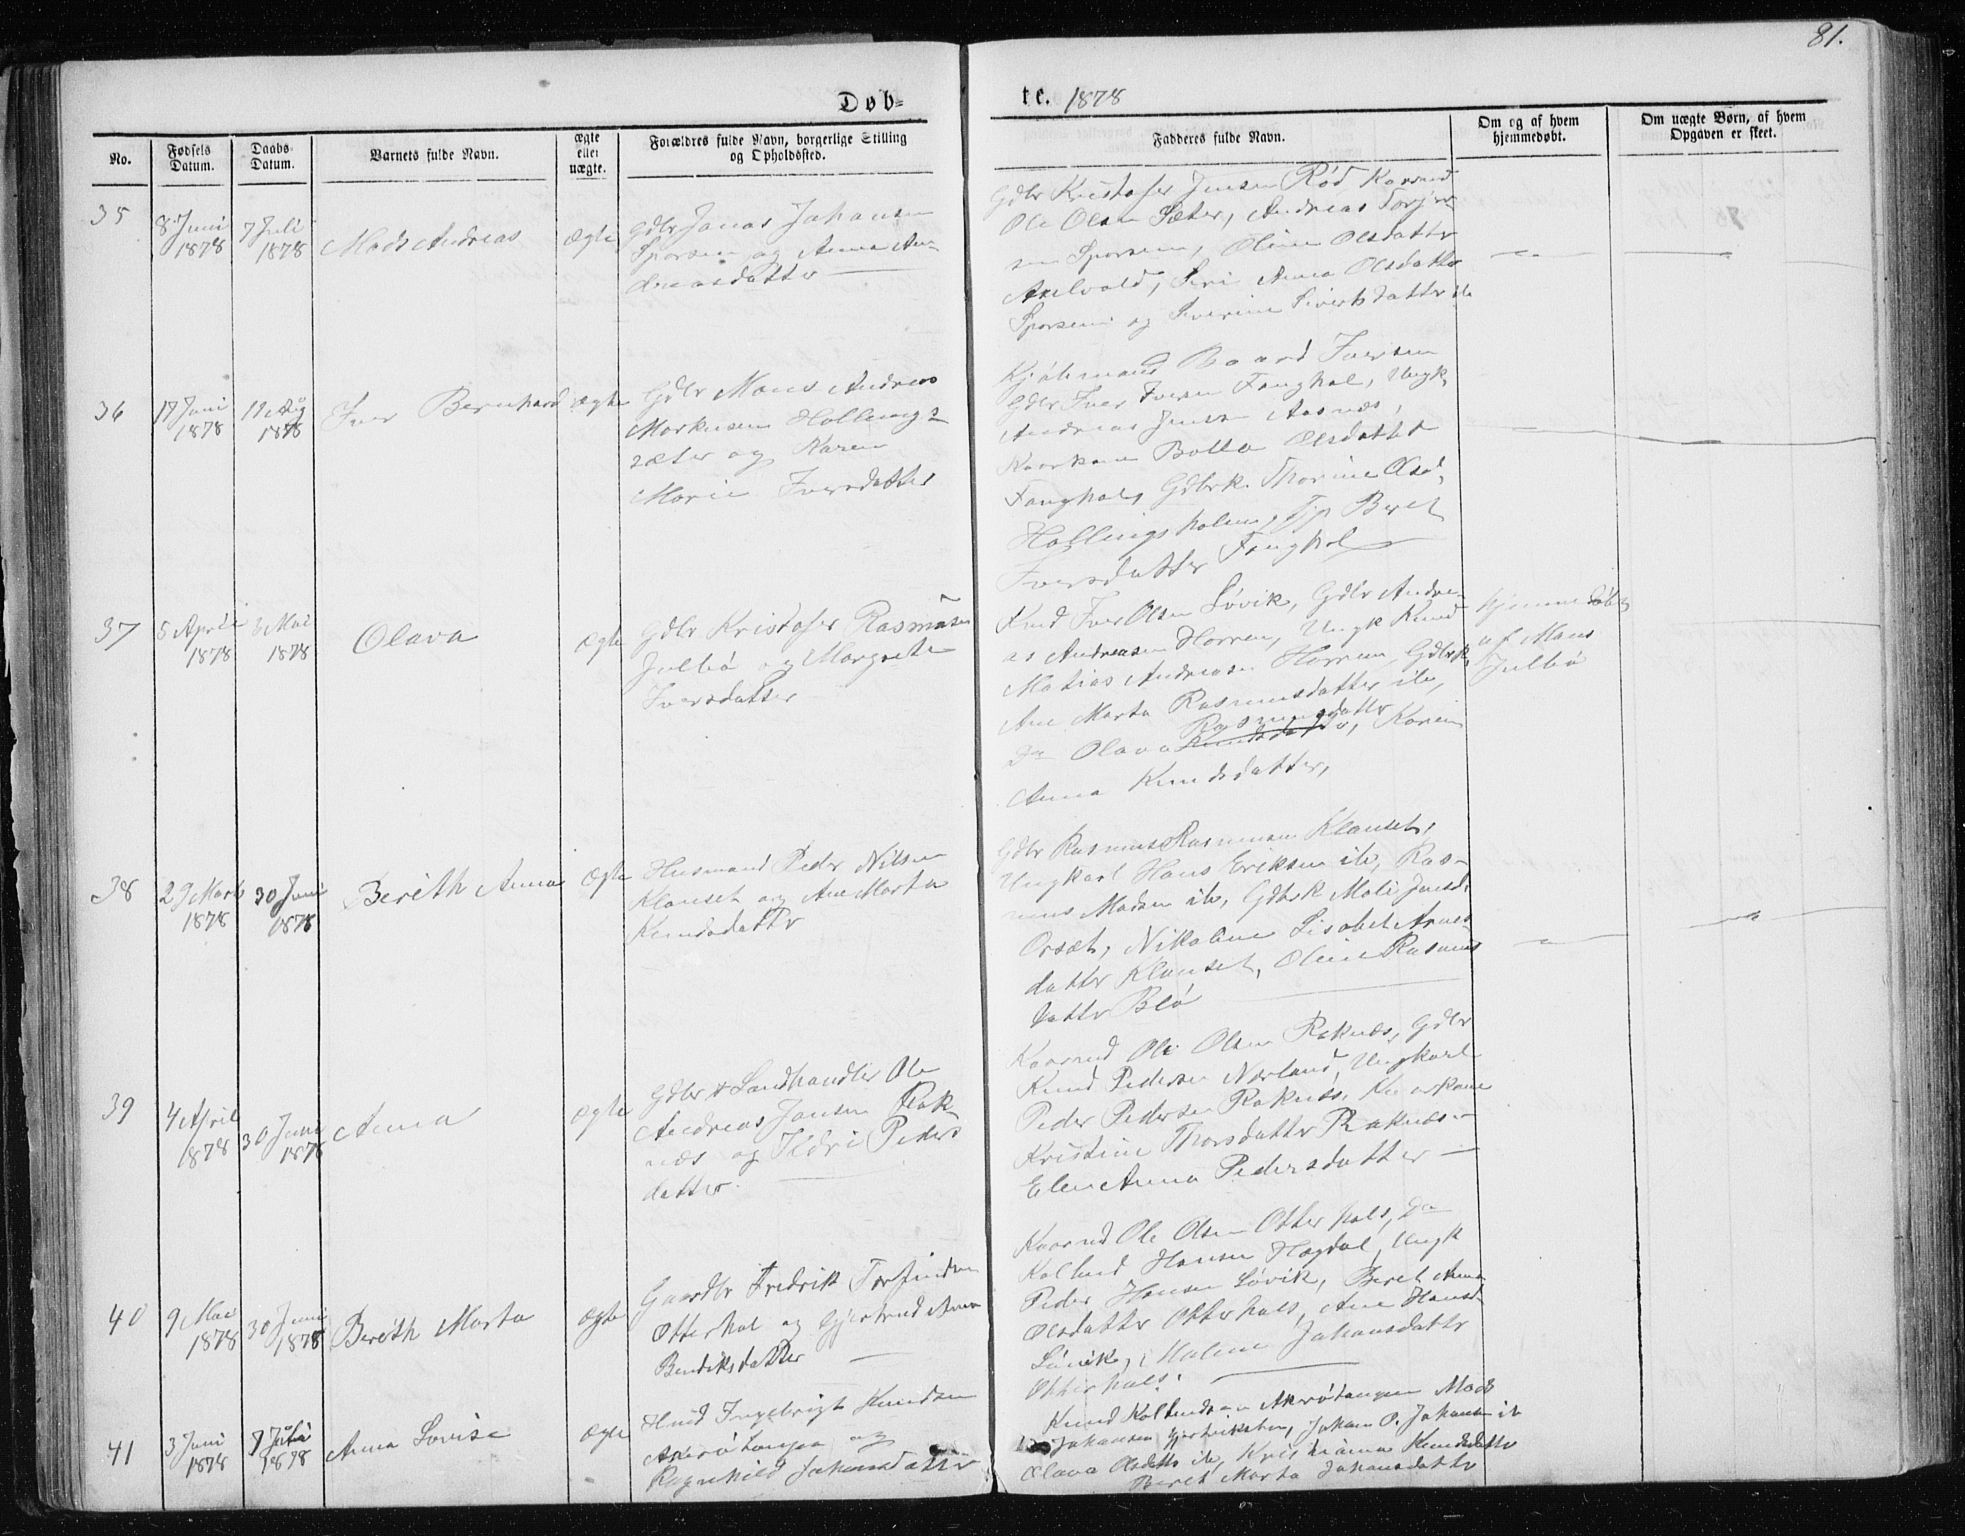 81.
Døb-
te. 1878
No.
Fødsels Datum.
Daabs Datum.
Barnets fulde Navn.
ægte eller uægte.
Forældres fulde Navn, borgerlige Stilling og Opholdssted.
Fadderes fulde Navn.
Om og af hvem hjemmedøbt.
Om uægte Børn, af hvem Opgaven er skeet.
35
8 Juni
1878
7 Juli
1878
Mads Andreas
Ægte
Gdbr Jonas Johansen
Sporsem og Anna An-
dreasdatter
Gdbr Kristofer Jensen Rød
Ole Olsen Sæter, Andreas
sen Sporsem, Oline Olsdatter
Siri Anna Olsdatter
Sporsem og Severine Sivertsdatter ib
36
17 Juni
1878
11 Aug
1878
Iver Bernhard
ægte
Gdbr Mons Andreas
Markusen Hollings-
sæter og Karen
Marie Iversdatter
Baard Iversen
Gdbr Iver Iversen Fanghol, Ungk
Andreas Jensen Aasnæs,
Bolla Olsdatter
Fanghol, Gdbrk. Thorine Olsd.
Hollingsholm, Pip Beret
Iversdatter Fanghol
37
5 April
1878
3 Mai
1878
Olava
Ægte
Gdbr Kristofer Rasmusen
Julbø og Margrete
Iversdatter
Iver Olsen Løvik, Gdbr Andre-
as Andreasen Horrem, Ungk Knud
Matias Andreasen Horrem, Gdbrk
Ane Marta Rasmusdatter ib,
Rasmusdatter
Do Olava Knudsdatter, Karen
Anna Knudsdatter,
hjemmedøbt
af Mons
Julbø
38
29 Marts
1878
30 Juni
1878
Berith Anna
Ægte
Husmand Peder Nilsen
Klauset og Ane Marta
Knudsdatter
Gdbr Rasmus Rasmusen Klauset,
Ungkarl Hans Eriksen ib, Ras-
mus Madsen ib, Gdbrk Mali Jonsd.
Orset, Nikoline Lisabet Arnes-
datter Klauset, Oline Rasmus
datter Blø
39
4 April
1878
30 Juni
1878
Anna
ægte
Gdbr & Landhandler Ole
Andreas Jansen Rak-
næs og Ildri Peders
datter.
Kaarmd Ole Olsen Raknæs, Gdbr
Knud Pedersen Nerland, Ungkarl
Peder Pedersen Raknæs, Kaarkone
Kristine Thorsdatter Raknæs
Elen Anna Pedersdatter
40
9 Mai
1878
30 Juni
1878
Berith Marta
Ægte
Gaardbr Fredrik Torfindsen
Otterhal og Gjertrud Anna
Bendiksdatter
Kaarmd Ole Olsen Otterhals, Do
Kolbend Hansen Hagdal, Ungk
Peder Hansen Løvik, Beret Anna
Olsdatter Otterhals, Ane Hansd.
Løvik, Malene Johansdatter
Otterhals.
41
3 Juni
1878
7 Juli
1878
Anna Lovise
Ægte
Husmd Ingebrigt Knudsen
Akerøtangen og
Ragnhild Johansdatter
Knud Kolbendsen Akerøtangen Mads
Johansen, Johan P. Johansen ib
Olava Olsdatter ib, Kristianna Knudsdatter
Beret Marta Johansdatter